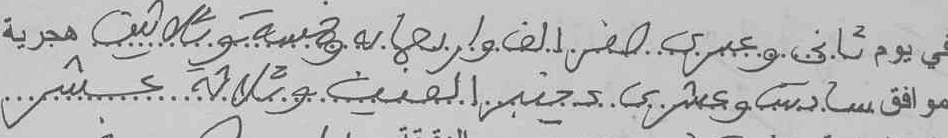 في يوم ثاني وعشري صفر الف واربعمايه وخمسة وثلاثين هجرية
موافق سادس وعشري دجنبر الفين وثلاثة عشر